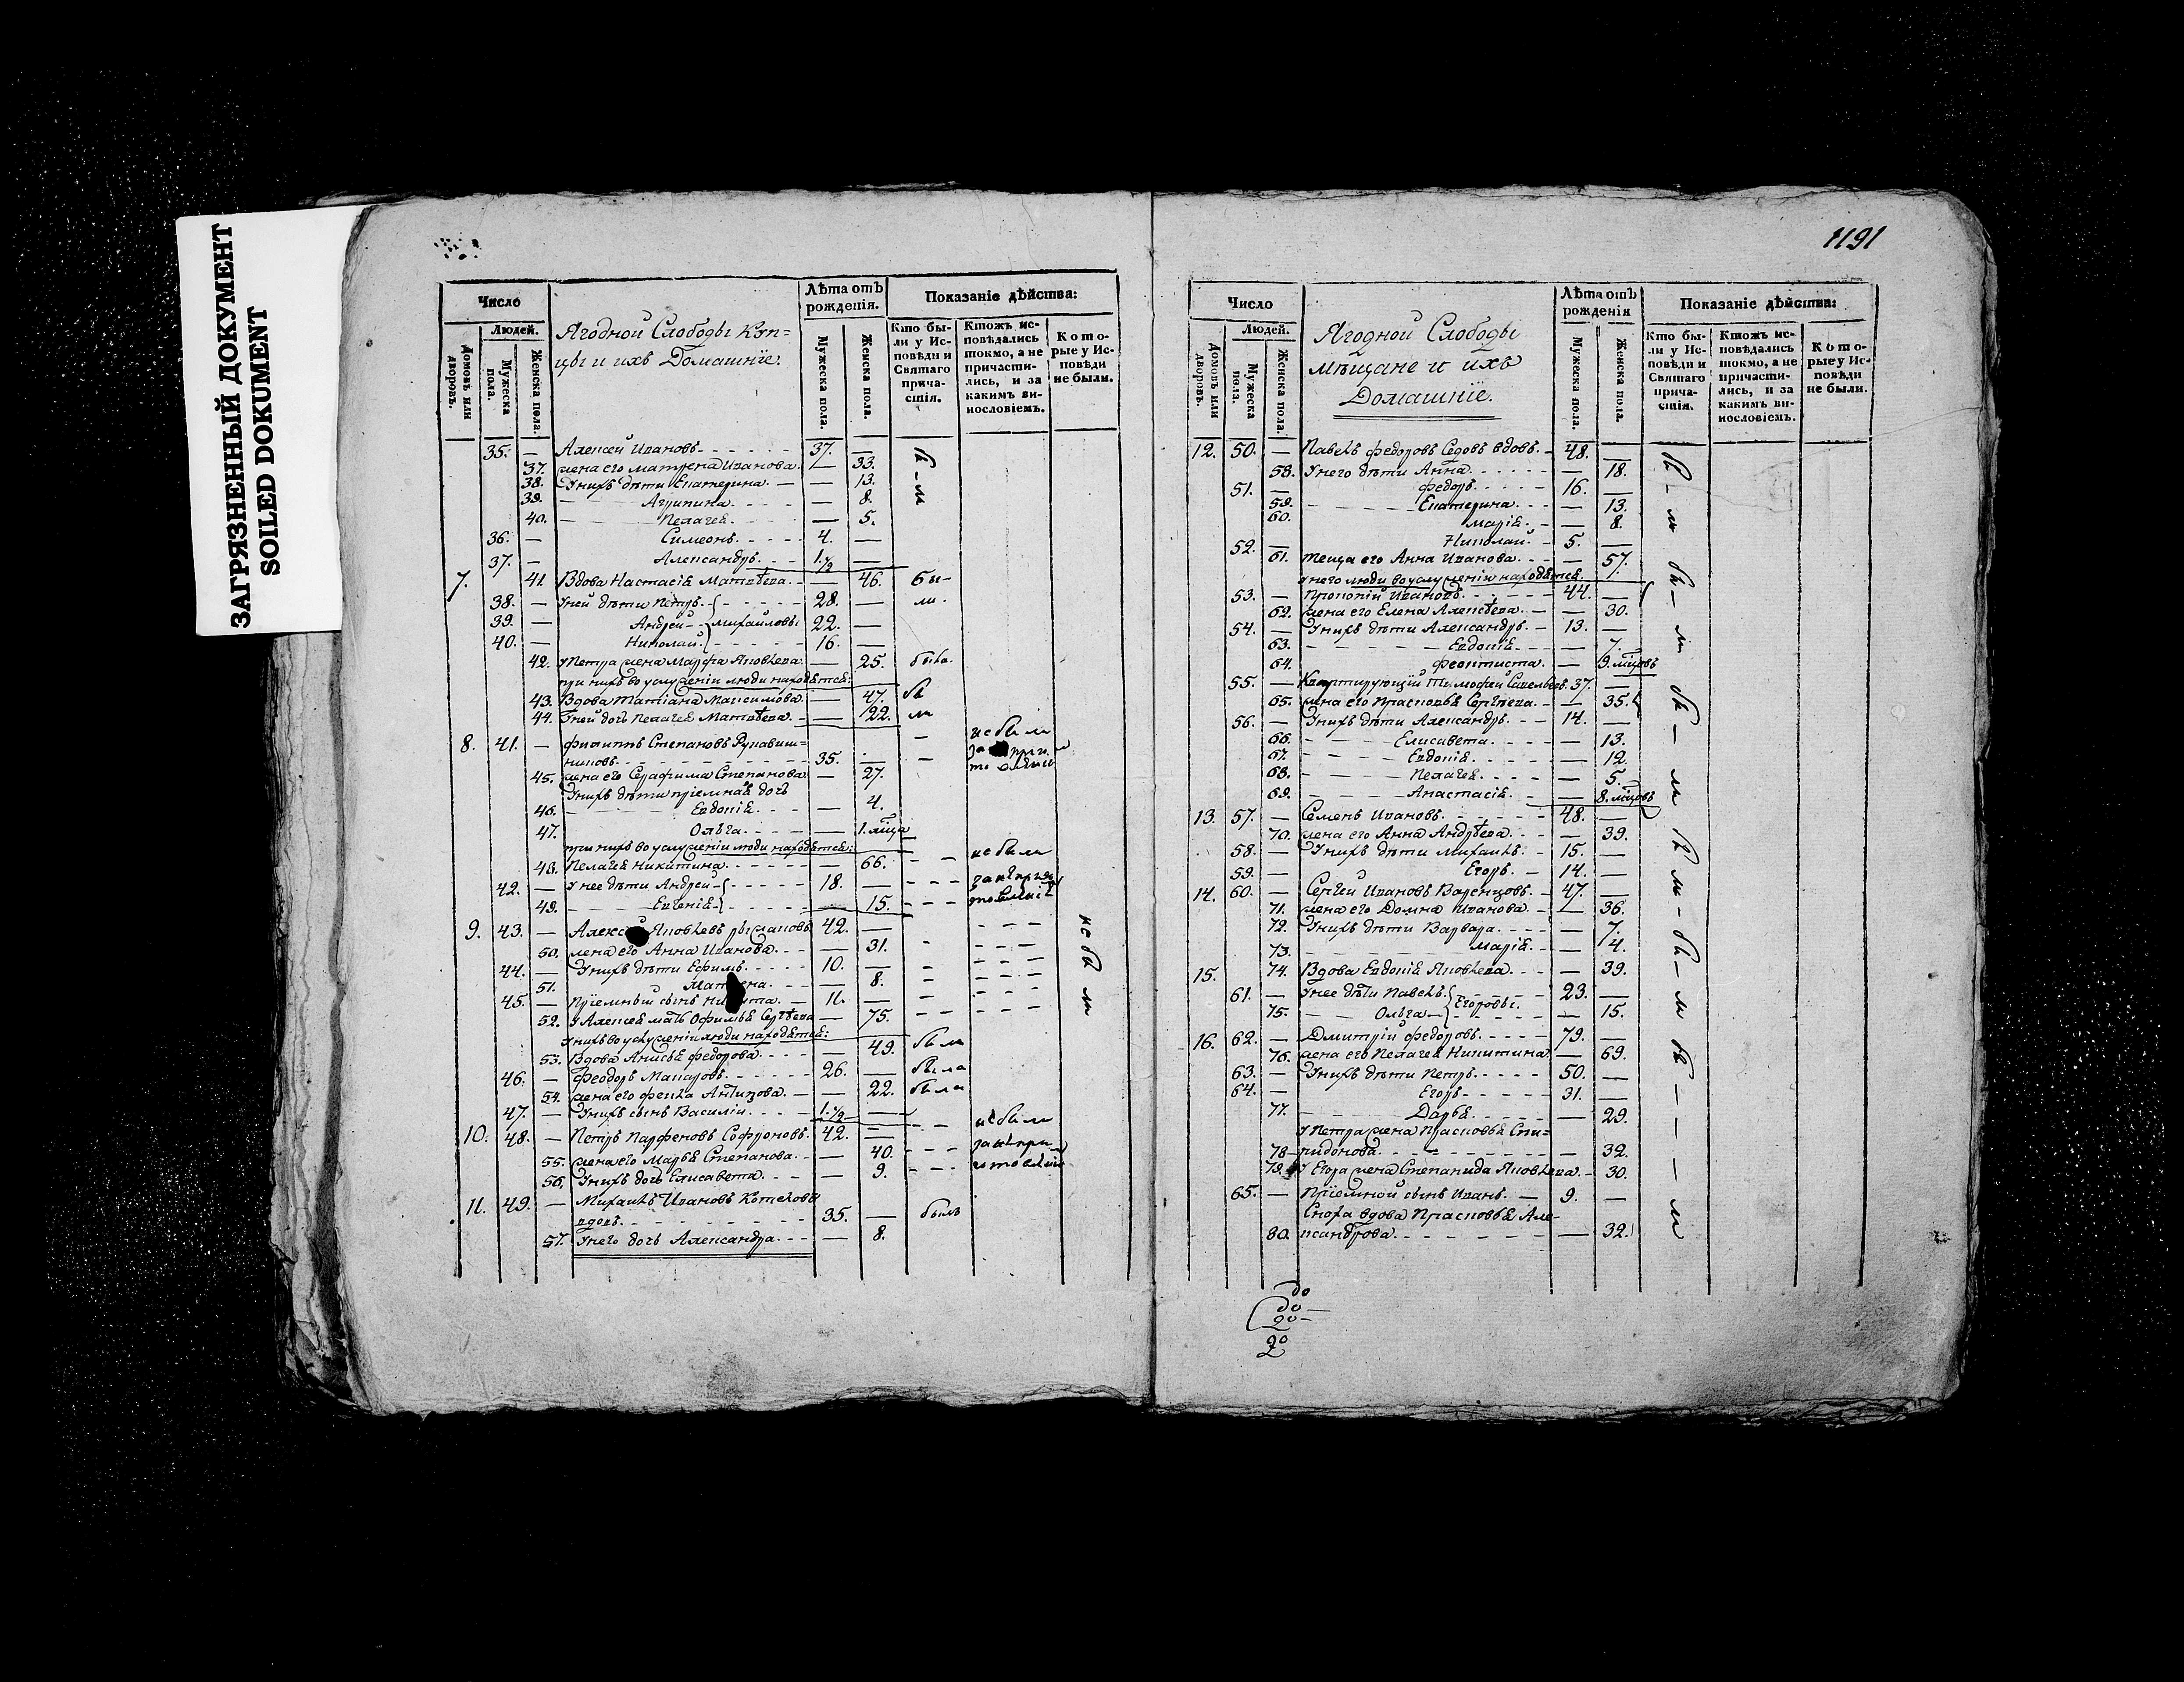 ЗАГРЯЗНЕННЫЙ ДОКУМЕНТ
SOILED DOKUMENT
Число
Людей.
Домовъ или дворовъ.
Мужеска пола.
Женска пола.
Ягодной Слободы Куп=
цы и ихъ Домашніе.
Лѣта отъ рожденія.
Мужеска пола.
Женска пола.
Показаніе дѣйства:
Кто бы-
ли у Ис-
повѣди и
Святаго
прича-
стія.
Ктожъ ис-
повѣдались
токмо, а не
причасти-
лись, и за
какимъ ви-
нословіемъ.
Кото-
рые у Ис-
повѣди
не были.
35. — Алексей Ивановъ 37. —
37. жена его Матрена Иванова. — 33.
38. У нихъ дѣти Екатерина. — 13.
39. Агрипина. — 8.
40. Пелагея. — 5.
36. — Симеонъ. 4. —
37. — Александръ. 1.½ —
7. 41. Вдова Настасія Матвѣева. — 46. бы-
38. — У ней дѣти Петръ. 28. — ли.
39. — Андрей Михайловы 22. —
40. — Николай. 16. —
42. У Петра жена Марфа Яковлева. — 25. была.
при нихъ во услуженіи люди находятся:
43. Вдова Татіана Максимова. — 47. бы
44. У ней дочь Пелагея Матвѣева. — 22. ли
8. 41. — Филиппъ Степановъ Рукавиш= не были
никовъ. 35. —
45. жена его Серафима Степанова — 27.
У нихъ дѣти пріемная дочь
46. Евдокія. — 4.
47. Ольга. — 1. мѣсца
при нихъ во услуженіи люди находятся:
48. Пелагея Никитина. — 66. не были
42. — У нее дѣти Андрей 18. —
49. Евгенія 15.
9. 43. — Яковлевъ 42. —
50. жена его Анна Иванова. — 31.
44. — У нихъ дѣти Ефимъ. 10. —
51. — 8.
45. — Пріемный сынъ 11. —
52. У Алексея мать Офимья Сергѣева — 75.
У нихъ во услуженіи люди находятся:
53. Вдова Анисья Федорова. — 49. была
46. — Феодоръ Макаровъ. 26. — была
54. жена его Фекла Антипова. — 22. была
47. — У нихъ сынъ Василій. 1.½ —
10. 48. — Петръ Парфеновъ Софроновъ. 42. — не были
55. жена его Марья Степанова. — 40.
56. У нихъ дочь Елисавета. — 9.
не бы ли
11. 49. — Михаилъ Ивановъ Котеловъ
вдовъ. 35. — былъ
57. У него дочь Александра. — 8.
1191
Число
Людей.
Домовъ или дворовъ.
Мужеска пола.
Женска пола.
Ягодной Слободы
мѣщане и ихъ
Домашніе.
Лѣта отъ рожденія
Мужеска пола.
Женска пола.
Показаніе дѣйства:
Кто бы-
ли у Ис-
повѣди и
Святаго
прича-
стія.
Ктожъ ис-
повѣдались
токмо, а не
причасти-
лись, и за
какимъ ви-
нословіемъ.
Кото-
рые у Ис-
повѣди
не были.
12. 50. — Павелъ Федоровъ Седовъ вдовъ. 48. —
58. У него дѣти Анна. — 18.
51. — Федоръ. 16. —
59. Екатерина. — 13.
60. Марія. — 8.
52. — Николай. 5. —
61. Теща его Анна Иванова. — 57.
у него люди во услуженіи находятся
53. — Прокопій Ивановъ. 44. —
62. жена его Елена Алексѣева. — 30.
54. — У нихъ дѣти Александръ. 13. —
63. Евдокія. — 7.
64. Феоктиста. — 9. мѣцовъ
55. — Квартирующій Тимофей Савельевъ. 37. —
65. жена его Прасковья Сергѣева. — 35.
56. — У нихъ дѣти Александръ. 14. —
66. Елисавета. — 13.
67. Евдокія. — 12.
68. Пелагея. — 5.
69. Анастасія. — 8. мѣцовъ
13. 57. — Семенъ Ивановъ. 48. —
70. жена его Анна Андрѣева. — 39.
58. — У нихъ дѣти Михаилъ. 15. —
59. — Егоръ. 14. —
14. 60. — Сергей Ивановъ Варенцовъ. 47. —
71. жена его Домна Иванова. — 36.
72. У нихъ дѣти Варвара. — 7.
73. Марія. — 4.
15. 74. Вдова Евдокія Яковлева. — 39.
61. — У нее дѣти Павелъ. Егоровы. 23. —
75. Ольга — 15.
16. 62. — Дмитрій Федоровъ. 79. —
76. жена его Пелагея Никитина. — 69.
63. — У нихъ дѣти Петръ. 50. —
64. — Егоръ 31. —
77. Дарья. — 29.
У Петра жена Прасковья Спи=
78 ридонова. — 32.
79. У Егора жена Степанида Яковлева. — 30.
65. — Пріемной сынъ Иванъ. 9. —
Сноха вдова Прасковья Але-
80. ксандрова. — 32.